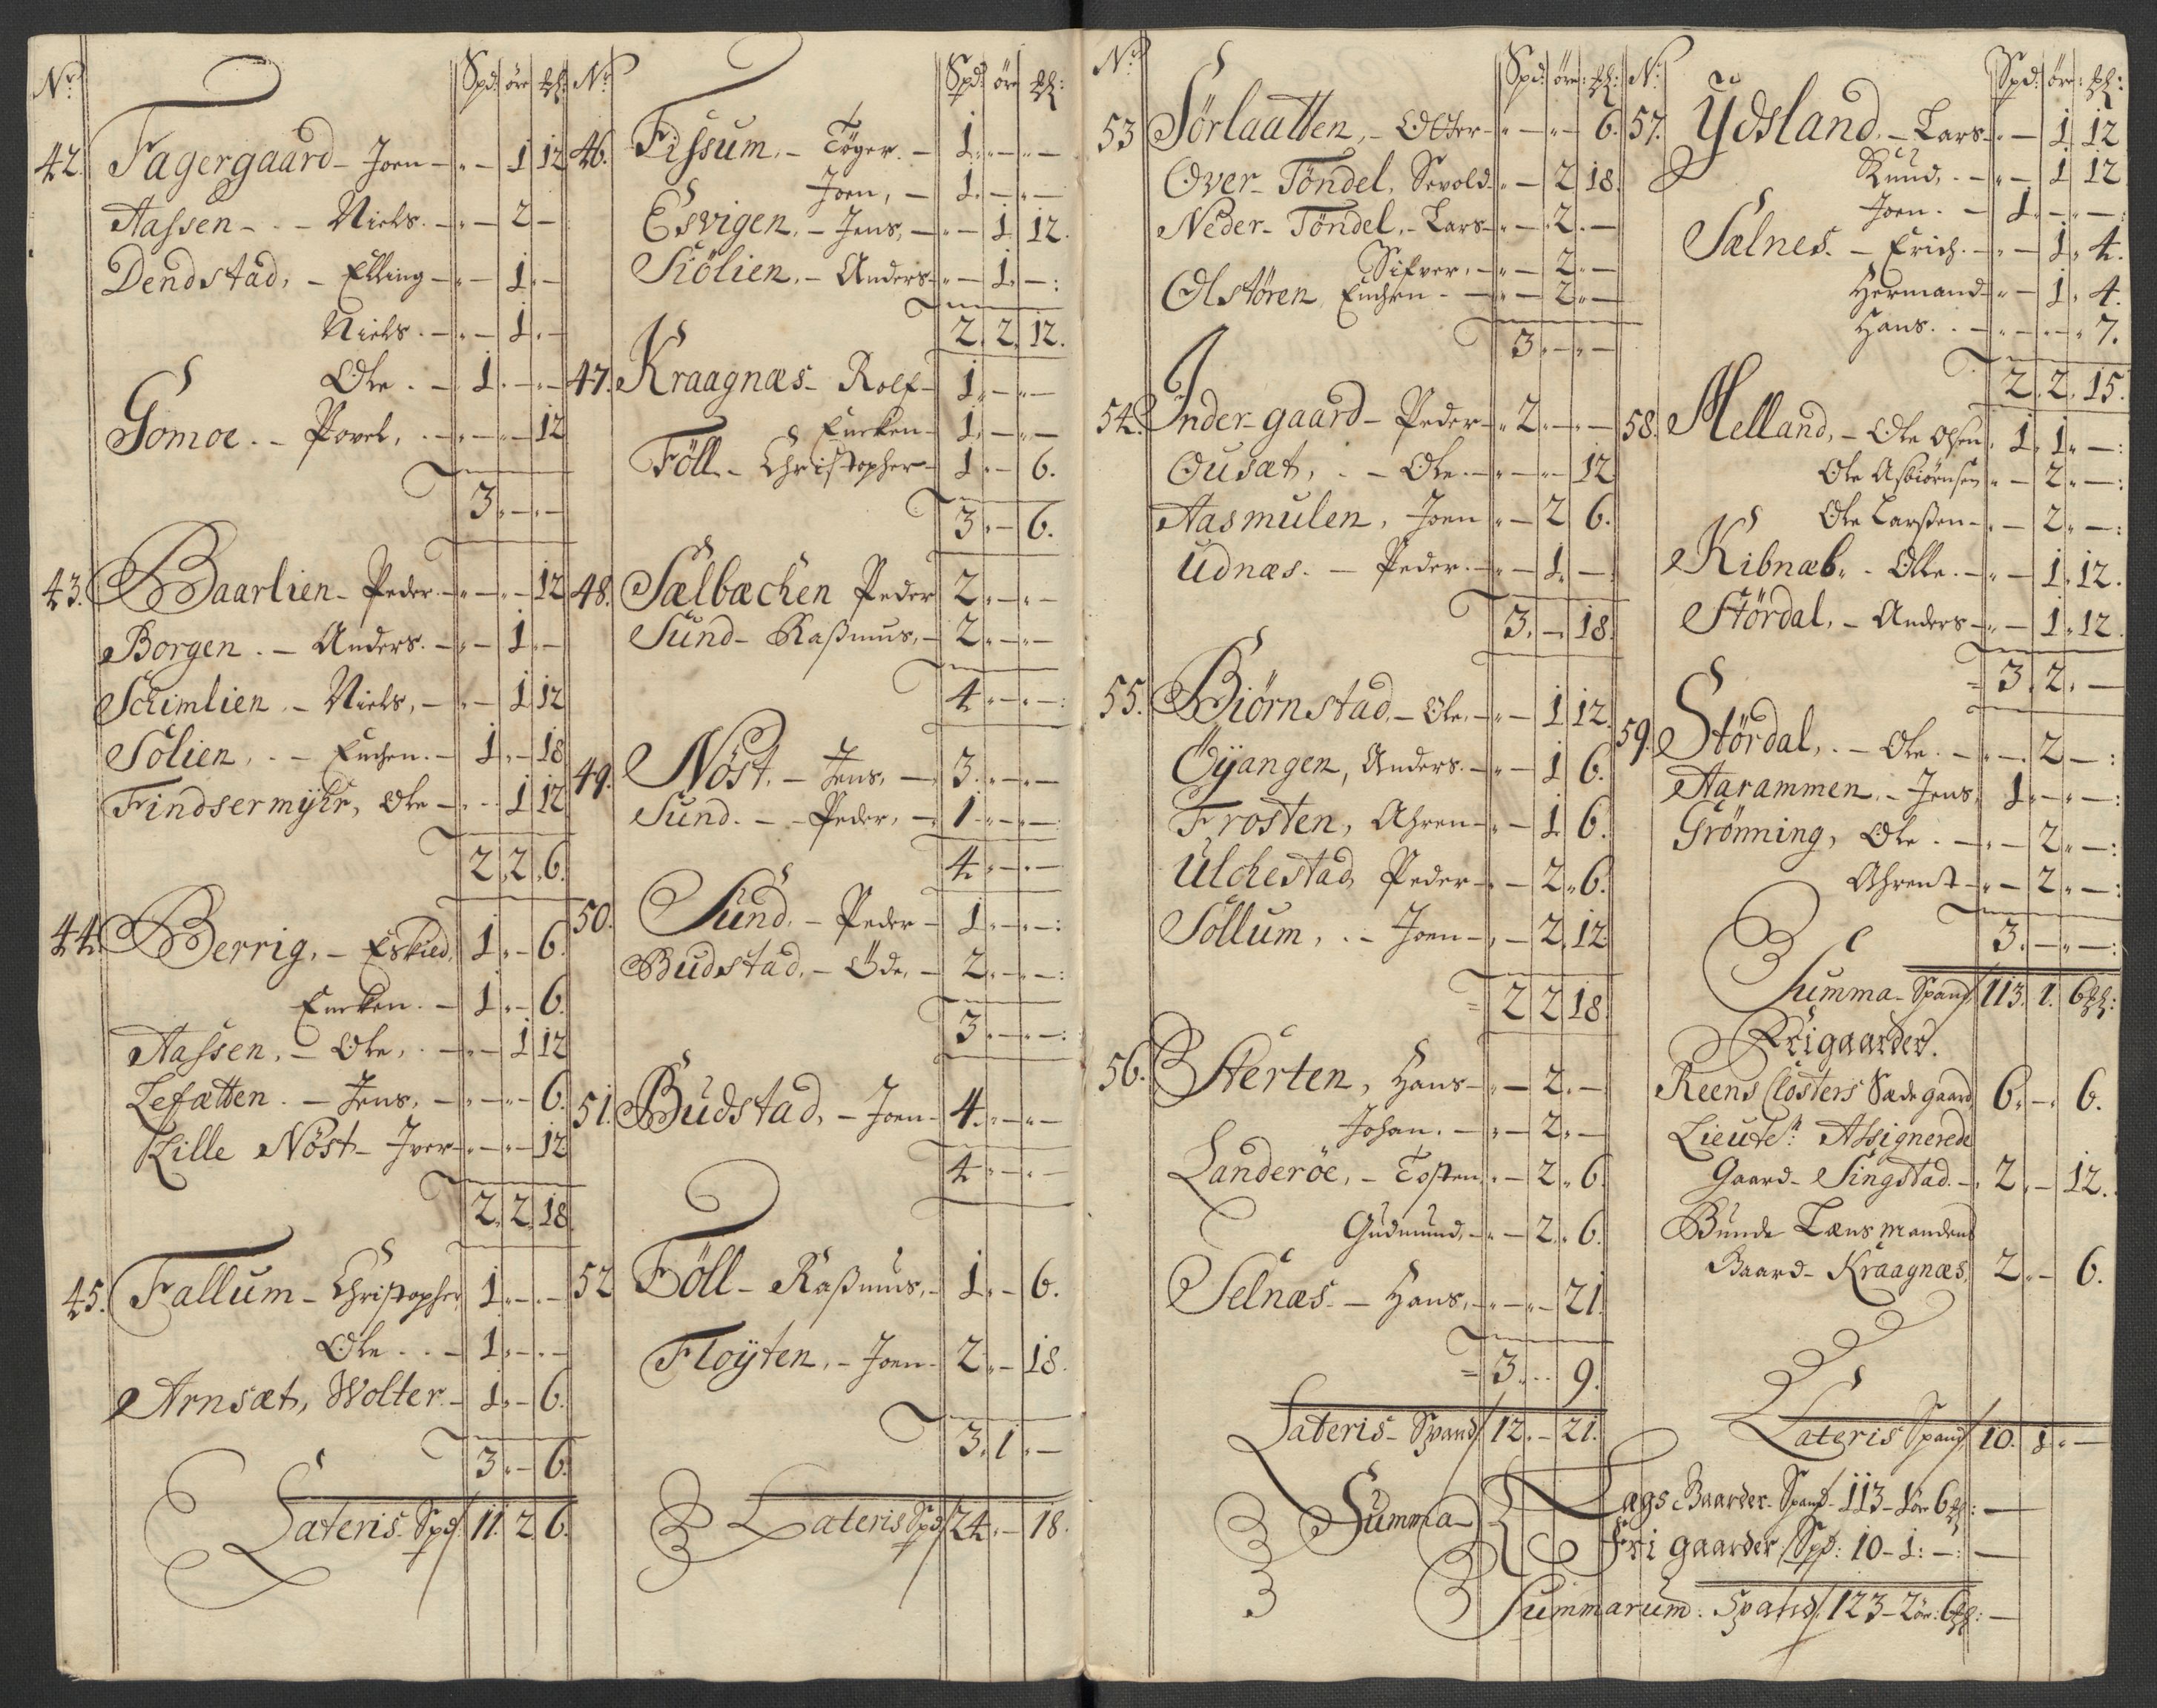 Nr Spd: öre ꝑl:
42. Fagergaard - Joen - " - 1 12
Aassen - - Niels. - " - 2 -
Dendstad, - Elling - " - 1 . -
Niels. - " - 1 . -
Ole . - 1 . - " -
Gomoe . - Povel, . - " - " - 12
3 . - . -
43. Baarlien - Peder. - " - " - 12
Borgen . - Anders. - " - 1 . -
Schimlien . - Niels, - " - 1 12
Sölien, . - Enchen. - 1 . - 18
Findsermÿhr, Ole - " - 1 12
2 . 2 . 6.
44. Berrig, - Eskild, 1 . - 6.
Encken . - 1 . - 6.
Aassen, - Ole, . - " - 1 12
Lefætten . - Jens, - " - " - 6.
Lille Nöst - Iver - " - " - 12
2. 2. 18.
45. Fallum - Christopher 1 . - . -
Ole . . - 1 . - . -
Arnsæt, Wolter - 1 . - 6.
3 . - 6.
Lateris Spd 11. 2 6.
Nr Spd: öre ꝑl:
46. Fissum, - Töger. - 1 . - . -
Joen, - 1 . - . -
Esvigen, - Jens, - " - 1 12.
Siölien, - Anders - " - 1 . - :
2. 2. 12.
47. Kraagnæs - Rolf - 1 . - . -
Encken - 1 . - . -
Föll - Christopher - 1 . - 6.
3 . - 6.
48. Sælbæchen Peder 2 . - . -
Sund - Rasmus, - 2 . - . -
4 . - . - :
49. Nöst, - Jens, - 3 . - . -
Sund. - - Peder, - 1 . - . -
4 . - . -
50. Sund, - Peder - 1 . - . - :
Budstad, - Öde, - 2 . - . - :
3 . - . - :
51. Budstad, - Joen - 4 . - . -
4 . - . -
52 Föll - Rasmus, - 1 . - 6.
Floÿten, - Joen - 2 . - 18.
3. 1 . -
Lateris Spd 24. - 18.
Nr Spd: öre: ꝑl:
53 Sörlaatten, - Olter - " - " - 6.
Over - Töndel, Sevold - " - 2 18.
Neder - Töndel, - Lars - " - 2 . -
Sifver, - " - 2 . -
Olstören Enchen - - " - 2 . -
3 . - . -
54. Inder - gaard - Peder - " 2 . - . -
Ousæt, . - Ole. - " - " - 12
Aasmulen, Joen " - 2 6.
Udnæs. - Peder. - " - 1 . -
3. - 18.
55. Biörnstad, - Ole, - " - 1 12.
Öÿangen, Anders. - " - 1 6.
Frosten, Ahren - " - 1 6.
Ulchestad, Peder - . - 2 . 6.
Söllum, . - Joen - . - 2. 12
= 2 2 18.
56. Sterten, Hans - " - 2 . -
Johan. - " - 2 . -
Landeröe, - Tosten, . - 2 . 6.
Gudmund, - " - 2 . 6.
Selnæs. - Hans, - " - " - 21.
= 3 . . . 9.
Lateris - Spand 12. - 21.
N: Spd: öre: ꝑl:
57. Ydsland, - Lars - . - 1. 12
Knud, . - " - 1 12
Joen. - 1 . - . - :
Sælnes. - Erich. - " - 1 . 4.
Hermand - " - 1 . 4.
Hans. . - " - " - . 7.
2. 2. 15.
58. Melland, - Ole Olsen . 1 . 1 . - :
Ole Asbiörnsen " - 2 . - :
Ole Larssen - . - 2 . - :
Kibnæb. - Olle. - " - 1 . 12.
Stördal, - Anders - " - 1 . 12.
= 3. 2. -
59. Stördal, . - Ole. - " - 2 - :
Aarammen, - Jens, 1 . - . - :
Grönning, Ole . - " - 2 . - :
Ahrent - " - 2 . - :
3. - . - :
Summa - Spand 113. 1. 6 ꝑl:
Frigaarder.
Reens Closters Sæde gaard 6. - . 6.
Lieutn: Assignerede
Gaard - Singstad. - 2. - 12.
Bunde Lænsmandens
Gaard - Kraagnæs, 2. - 6.
Lateris Spand 10. 1 . -
Summa Lægs Gaarder - Spand - 113 - 1 ör 6 ꝑl: -
Fri gaarder Spd: 10 - 1 : - : -
Summarum: Spand 123 - 2 ör: 6 ꝑl: -